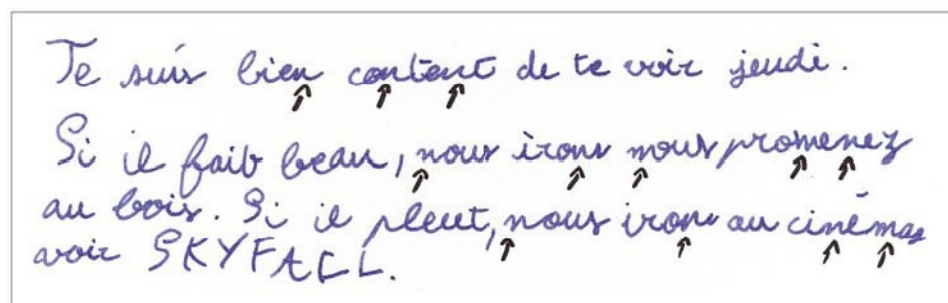 Je suis bien content de te voir jeudi.
Si il fait beau, nous irons nous promenez
au bois. Si il pleut, nous irons au cinémas
voir SKYFALL.